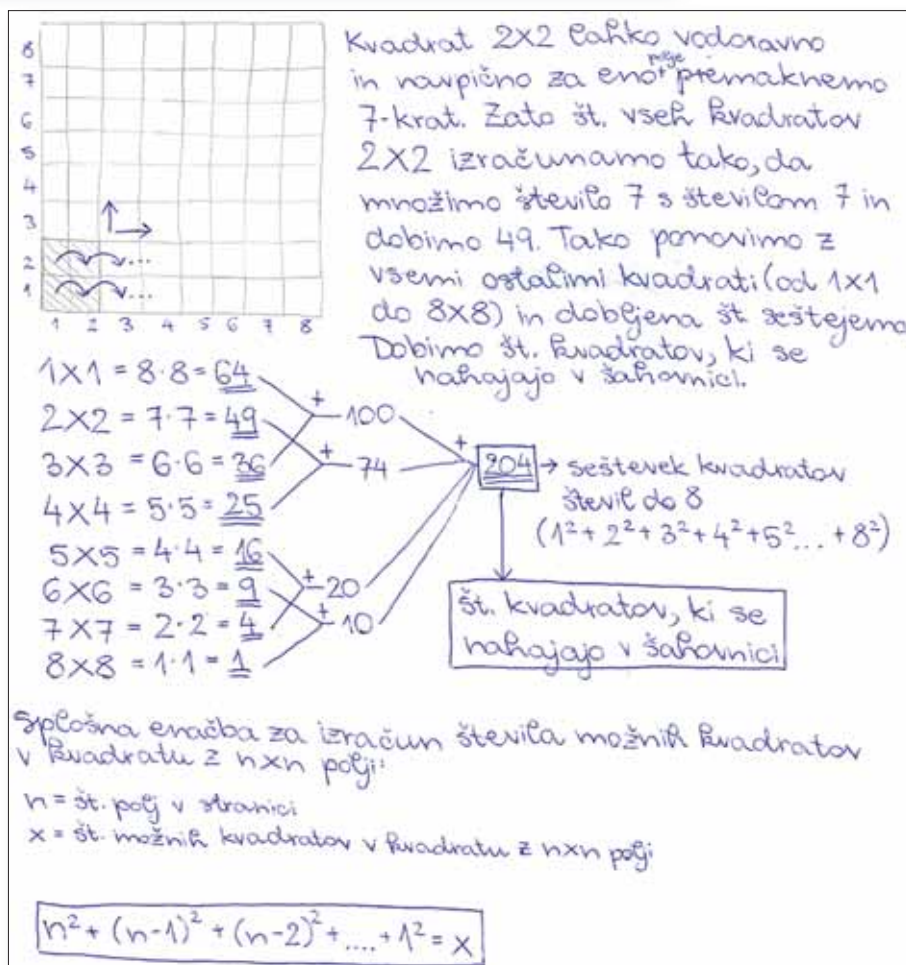 8
7
6
5
4
3
2
1
1 2 3 4 5 6 7 8
Kvadrat 2x2 lahko vodoravno
in navpično za eno polje premaknemo
7-krat. Zato št. vseh kvadratov
2x2 izračunamo tako, da
množimo število 7 s številom 7 in
dobimo 49. Tako ponovimo z
vsemi ostalimi kvadrati (od 1x1
do 8x8) in dobljena št. seštejemo
Dobimo št. kvadratov, ki se
nahajajo v šahovnici.
1x1 = 8·8 = 64
2x2 = 7·7 = 49
3x3 = 6·6 = 36
4x4 = 5·5 = 25
5x5 = 4·4 = 16
6x6 = 3·3 = 9
7x7 = 2·2 = 4
8x8 = 1·1 = 1
+ 100
+ 74
+ 20
+ 10
+ 204 → seštevek kvadratov
števil do 8
(1² + 2² + 3² + 4² + 5² ... + 8²)
št. kvadratov, ki se
nahajajo v šahovnici
Splošna enačba za izračun števila možnih kvadratov
v kvadratu z nxn polji:
n = št. polj v stranici
x = št. možnih kvadratov v kvadratu z nxn polji
n² + (n-1)² + (n-2)² + .... + 1² = x